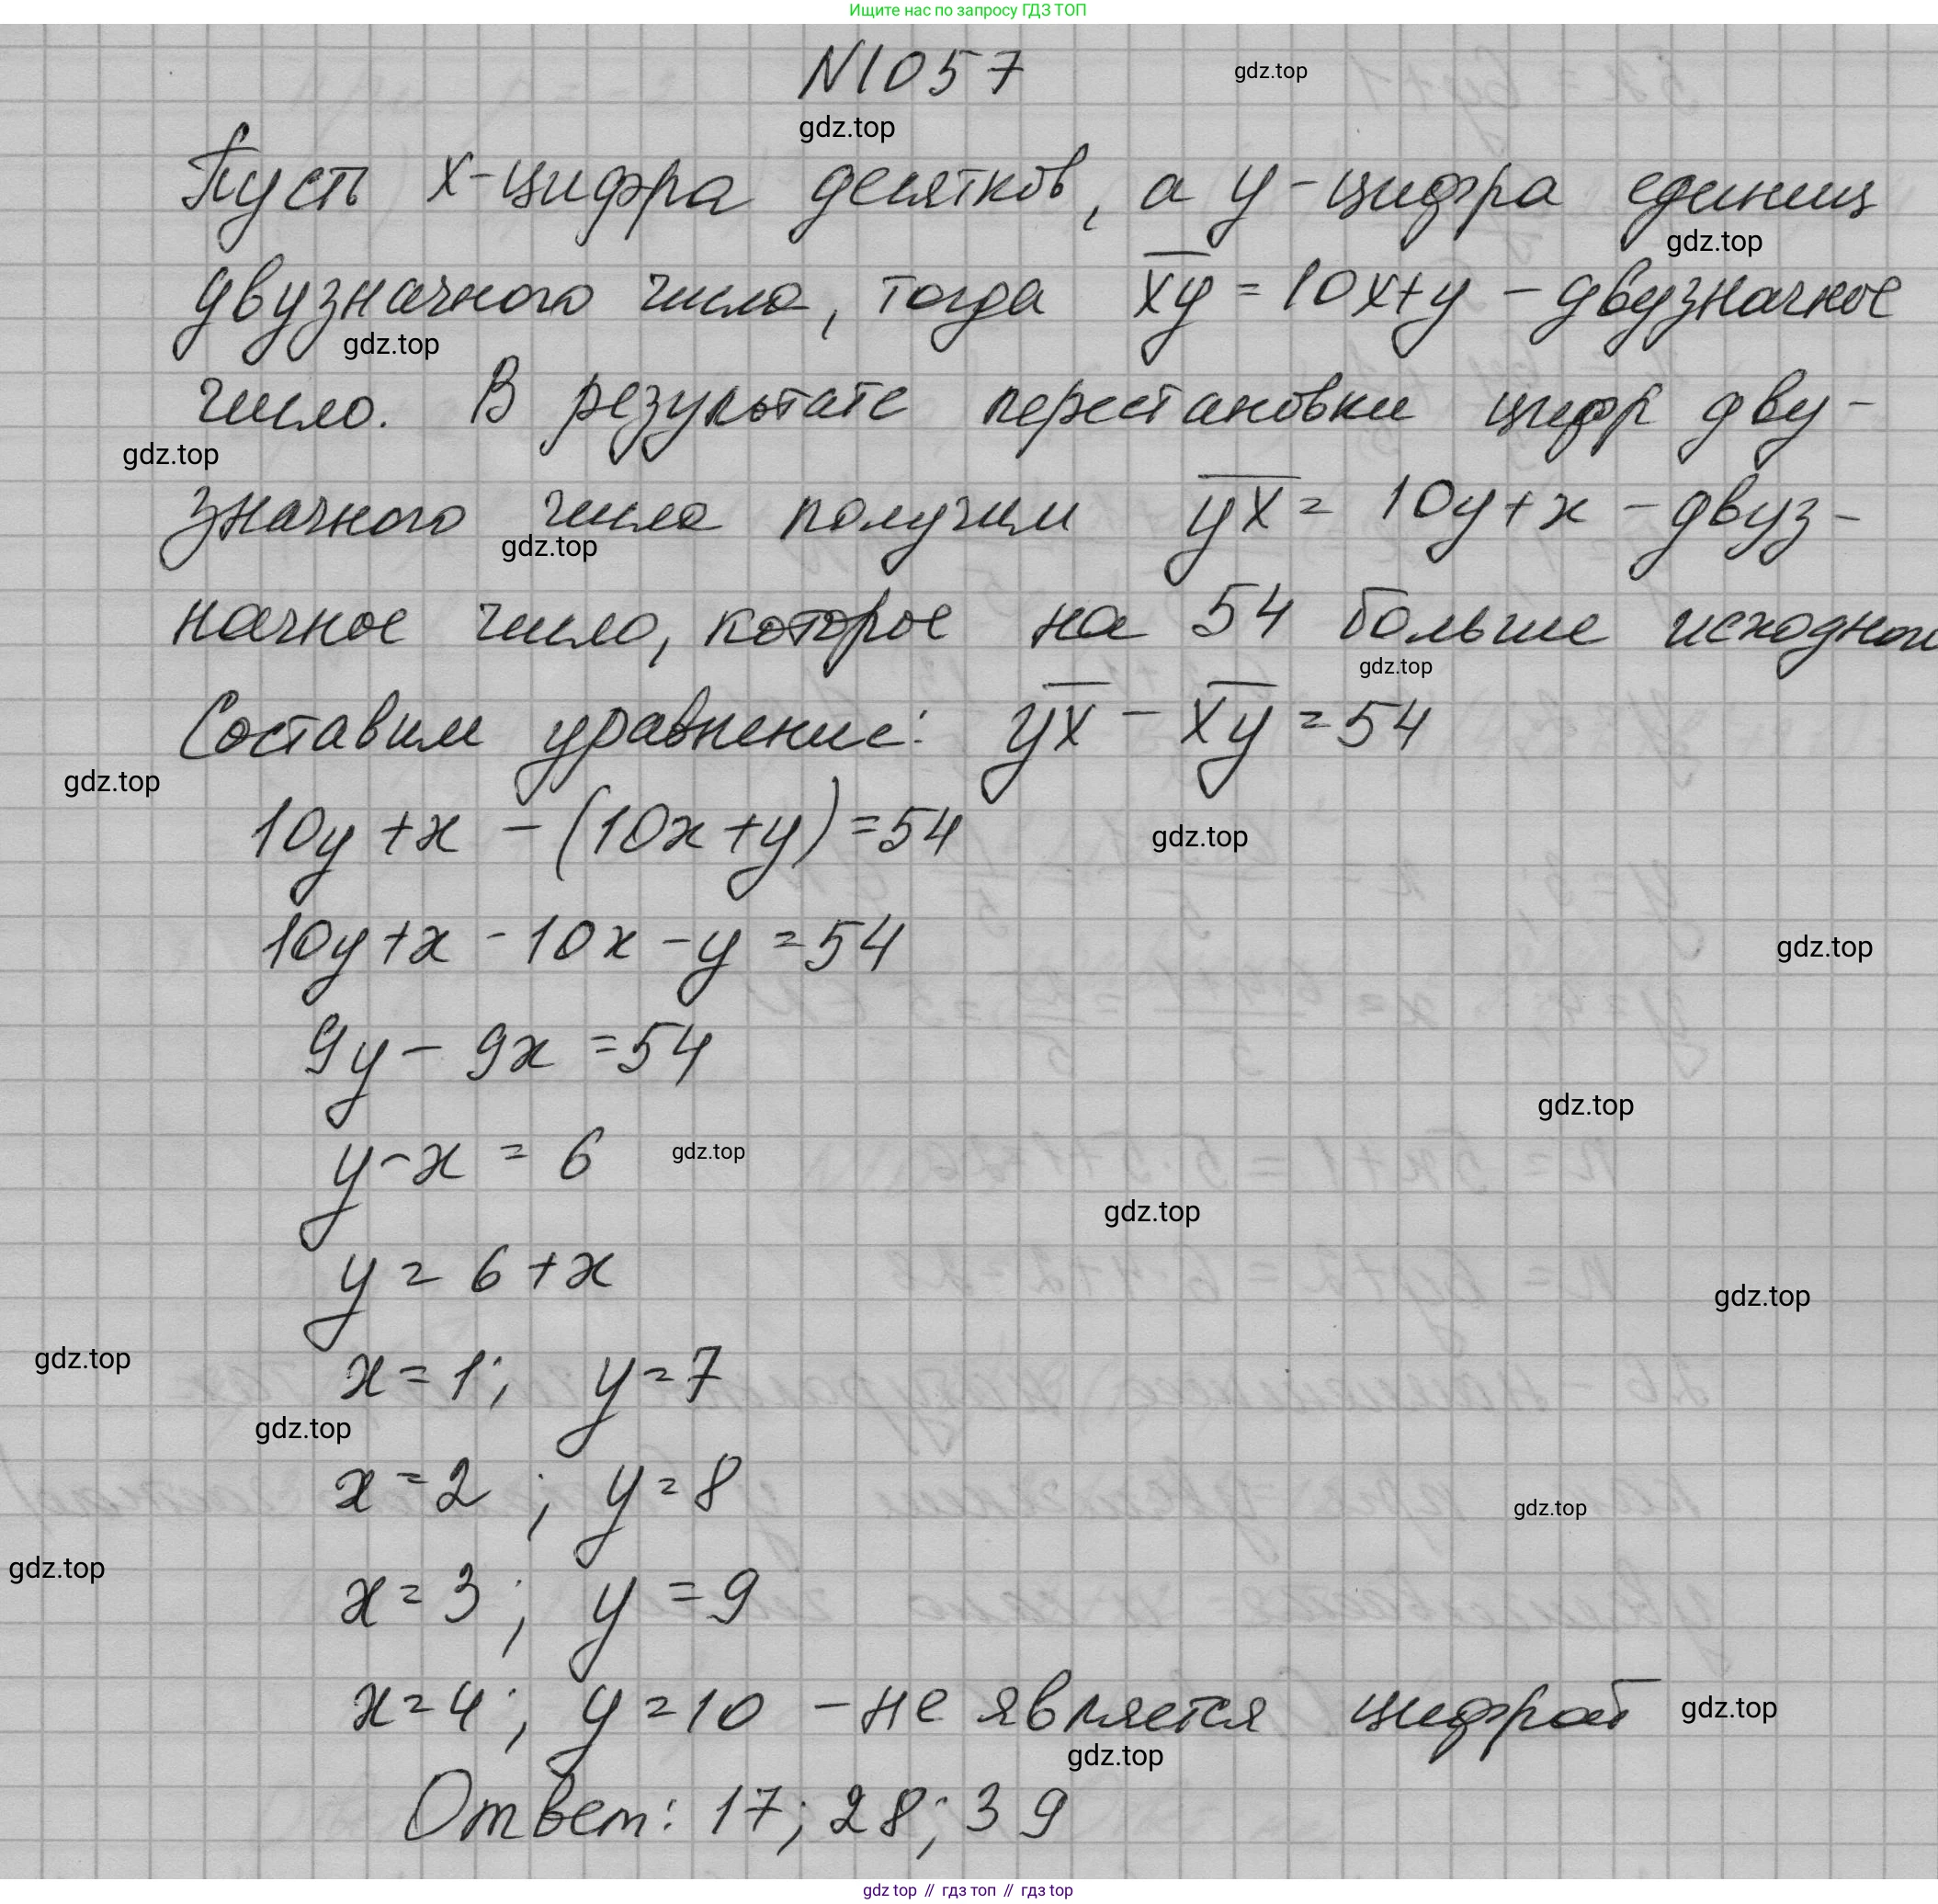 Ищите нас по запросу ГДЗ ТОП
N1057
gdz.top
gdz.top
Пусть x-цифра десятков, а y-цифра единиц
gdz.top
двузначного числа, тогда x̅y̅ = 10x+y - двузначное
gdz.top
число. В результате перестановки цифр дву-
gdz.top
значного числа получим y̅x̅ = 10y+x - двуз-
gdz.top
начное число, которое на 54 больше исходного
gdz.top
Составим уравнение: y̅x̅ - x̅y̅ = 54
gdz.top
10y+x - (10x+y)=54
gdz.top
10y+x - 10x - y = 54
gdz.top
9y - 9x = 54
gdz.top
y-x = 6
gdz.top
gdz.top
y = 6+x
gdz.top
gdz.top
x=1; y=7
gdz.top
x=2; y=8
gdz.top
gdz.top
x=3; y=9
x=4; y=10 - не является цифрой
gdz.top
gdz.top
Ответ: 17; 28; 39
gdz top // гдз топ // гдз top